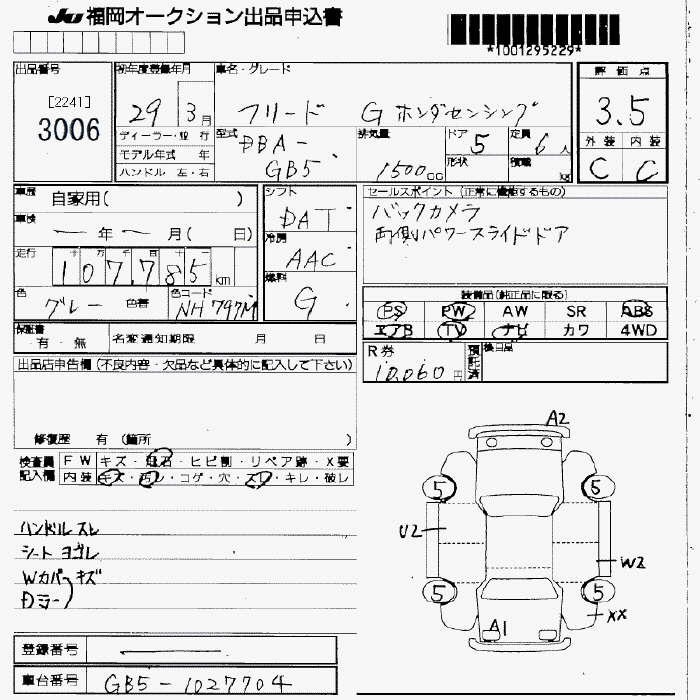 JU 福岡オークション出品申込書
*1001295229*
出品番号 [2241] 3006
初年度登録年月 29 3月
車名・グレード フリード G ホンダセンシング
評価点 3.5
ディーラー・並行
モデル年式 年
ハンドル 左・右
型式 DBA-GB5
排気量 1500cc
ドア 5
定員 6人
形状
積載 kg
外装 内装
C C
車歴 自家用( )
車検 ー年ー月( 日)
走行 107,785km
色 グレー 色替
色コード NH797M
シフト DAT
冷房 AAC
燃料 G
セールスポイント (正常に機能するもの)
バックカメラ
両側パワースライドドア
装備品(純正品に限る)
PS PW AW SR ABS
エアB TV ナビ カワ 4WD
保証書 有・無
名変通知期限 月 日
R券 10,060円
預託済
後日品
出品店申告欄(不良内容・欠品など具体的に記入して下さい)
修復歴 有 (箇所 )
検査員記入欄
FW キズ・飛石・ヒビ割・リペア跡・X要
内装 キズ・汚レ・コゲ・穴・スレ・キレ・破レ
ハンドル スレ
シート ヨゴレ
Wカバー キズ
Dミラー
A2
5 5
U2
W2
5 5
XX
A1
登録番号 ー
車台番号 GB5-1027704